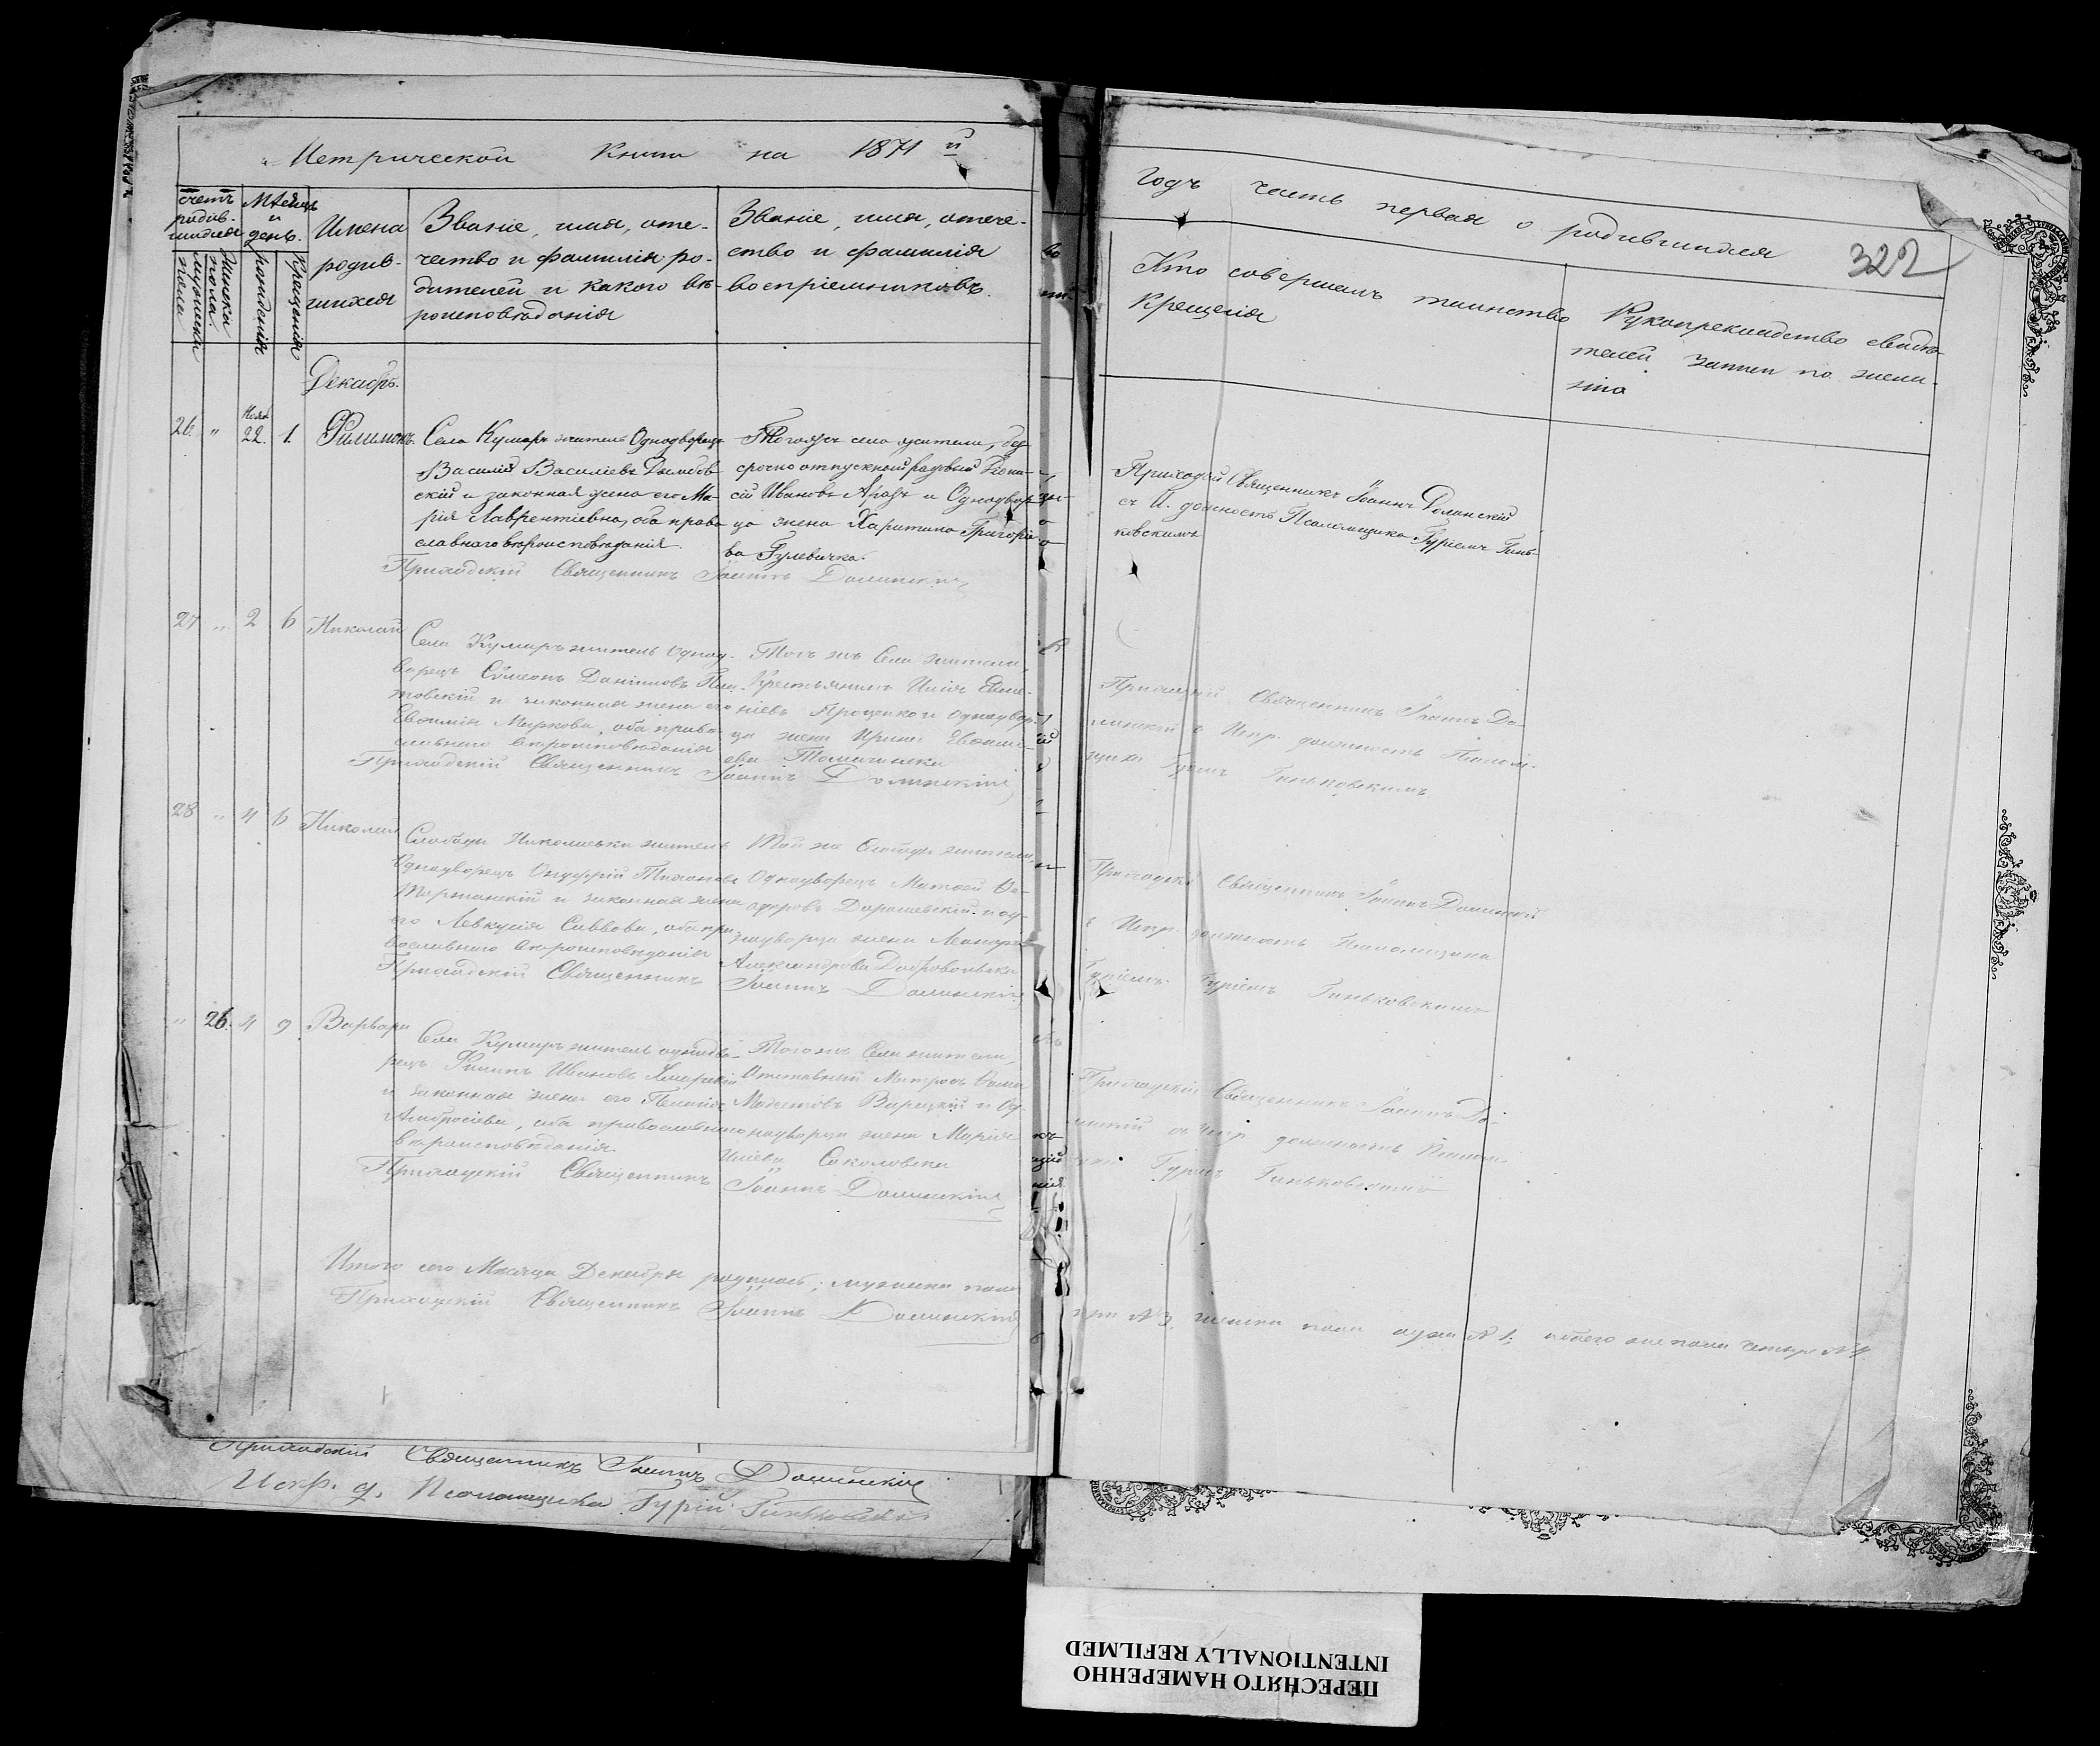 Метрической Книги на 1871 й
Годъ часть первая о родившихся
322
счетъ родив-шихся
мужеска пола
женска пола
Мѣсяцъ и день.
рожденія
крещенія
Имена
родив-
шихся
Званіе, имя, оте-
чество и фамилія ро-
дителей и какого вѣ-
роисповѣданія
Званіе, имя, отече-
ство и фамилія
воспріемниковъ.
Кто совершалъ таинство
Крещенія
Рукоприкладство свидѣ-
телей записи по жела-
нію
Декабрь.
26. " 22. 1. Филимонъ.
Села Кумаръ житель Однодворецъ
Василій Васильевъ
скій и законная жена его Ма-
рія Лаврентіевна, оба право
славнаго вѣроисповѣданія.
Тогожъ села жители, без
срочно отпускной рядовый
сій Ивановъ и Однодвор
ца жена Харитина Григорьe
ва Гулевичка.
Приходскій Священникъ Іоаннъ Долинскій
Приходскій Священникъ Іоаннъ Долинскій
съ И. должность Псаломщика Гуріемъ Гинь-
ковскимъ
27 " 2 6 Николай
Села Кумаръ житель Однод-
ворецъ Сѷмеонъ Даніиловъ
товскій и законная жена его
Евѳимія Маркова, оба право-
славнаго вѣроисповѣданія
Тогожъ Села жители
Крестьянинъ Илія
Проценко и Однодвор
ца жена Ирина Евѳимі-
ева
Приходскій Священникъ Іоаннъ Долинскій
Приходскій Священникъ Іоаннъ До-
линскій съ Испр. должность Псалом-
щика Гуріемъ Гиньковскимъ
28 " 4 6 Николай
Слободы Николаевки житель
Однодворецъ Онуфрій Тихоновъ
и законная жена
его Левкусія Саввова, оба пра-
вославнаго вѣроисповѣданія
Той же Слободы жители,
Однодворецъ Матѳей Ѳе-
одоровъ Дорошевскій и од-
нодворца жена
Александрова Добровольска
Приходскій Священникъ Іоаннъ Долинскій
Приходскій Священникъ Іоаннъ Долинскій
съ Испр. должность Псаломщика
Гуріемъ Гуріемъ Гиньковскимъ
" 26. 4 9 Варвара
Села Кумаръ житель однодво-
рецъ Филипъ Ивановъ
и законная жена его Пелагія
Амбросіева, оба православнаго
вѣроисповѣданія.
Тогожъ Села жители,
Отставный Матросъ Ѳома
Модестовъ и Од-
нодворца жена Марія
Иліева Соколовска
Приходскій Священникъ Іоаннъ Долинскій
Приходскій Священникъ Іоаннъ До-
линскій съ Испр. должность Псалом-
щика Гуріемъ Гиньковскимъ
Итого сего Мѣсяца Декабря родилось; мужеска пола
три № 3, женска пола одна № 1; обоего же пола четыре № 4.
Приходскій Священникъ Іоаннъ Долинскій
Приходскій Священникъ Іоаннъ Долинскій
Испр. д. Псаломщика Гурій Гиньковскій
ПЕРЕСНЯТО НАМЕРЕННО
INTENTIONALLY REFILMED